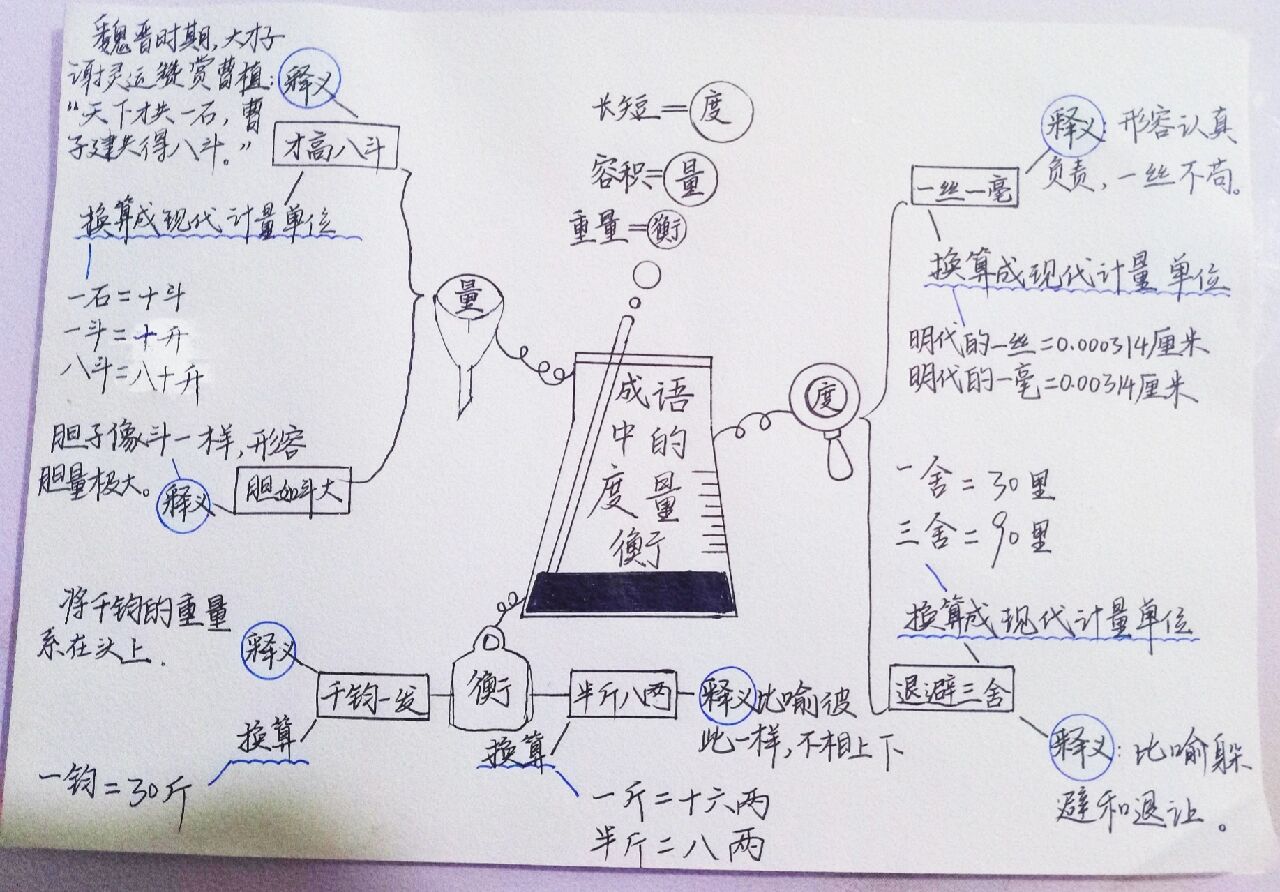 魏晋时期,大才子
谢灵运赞赏曹植:
“天下才共一石,曹
子建失得八斗。”
释义
才高八斗
换算成现代计量单位
一石=十斗
一斗=十升
八斗=八十升
胆子像斗一样,形容
胆量极大。
释义
胆如斗大
量
长短=度
容积=量
重量=衡
成语
中的
度量
衡
度
释义:形容认真
负责,一丝不苟。
一丝一毫
换算成现代计量单位
明代的一丝=0.000314厘米
明代的一毫=0.00314厘米
一舍=30里
三舍=90里
换算成现代计量单位
退避三舍
释义:比喻躲
避和退让。
将千钧的重量
系在头上.
释义
千钧一发
换算
一钧=30斤
衡
半斤八两
释义比喻彼
此一样,不相上下
换算
一斤=十六两
半斤=八两